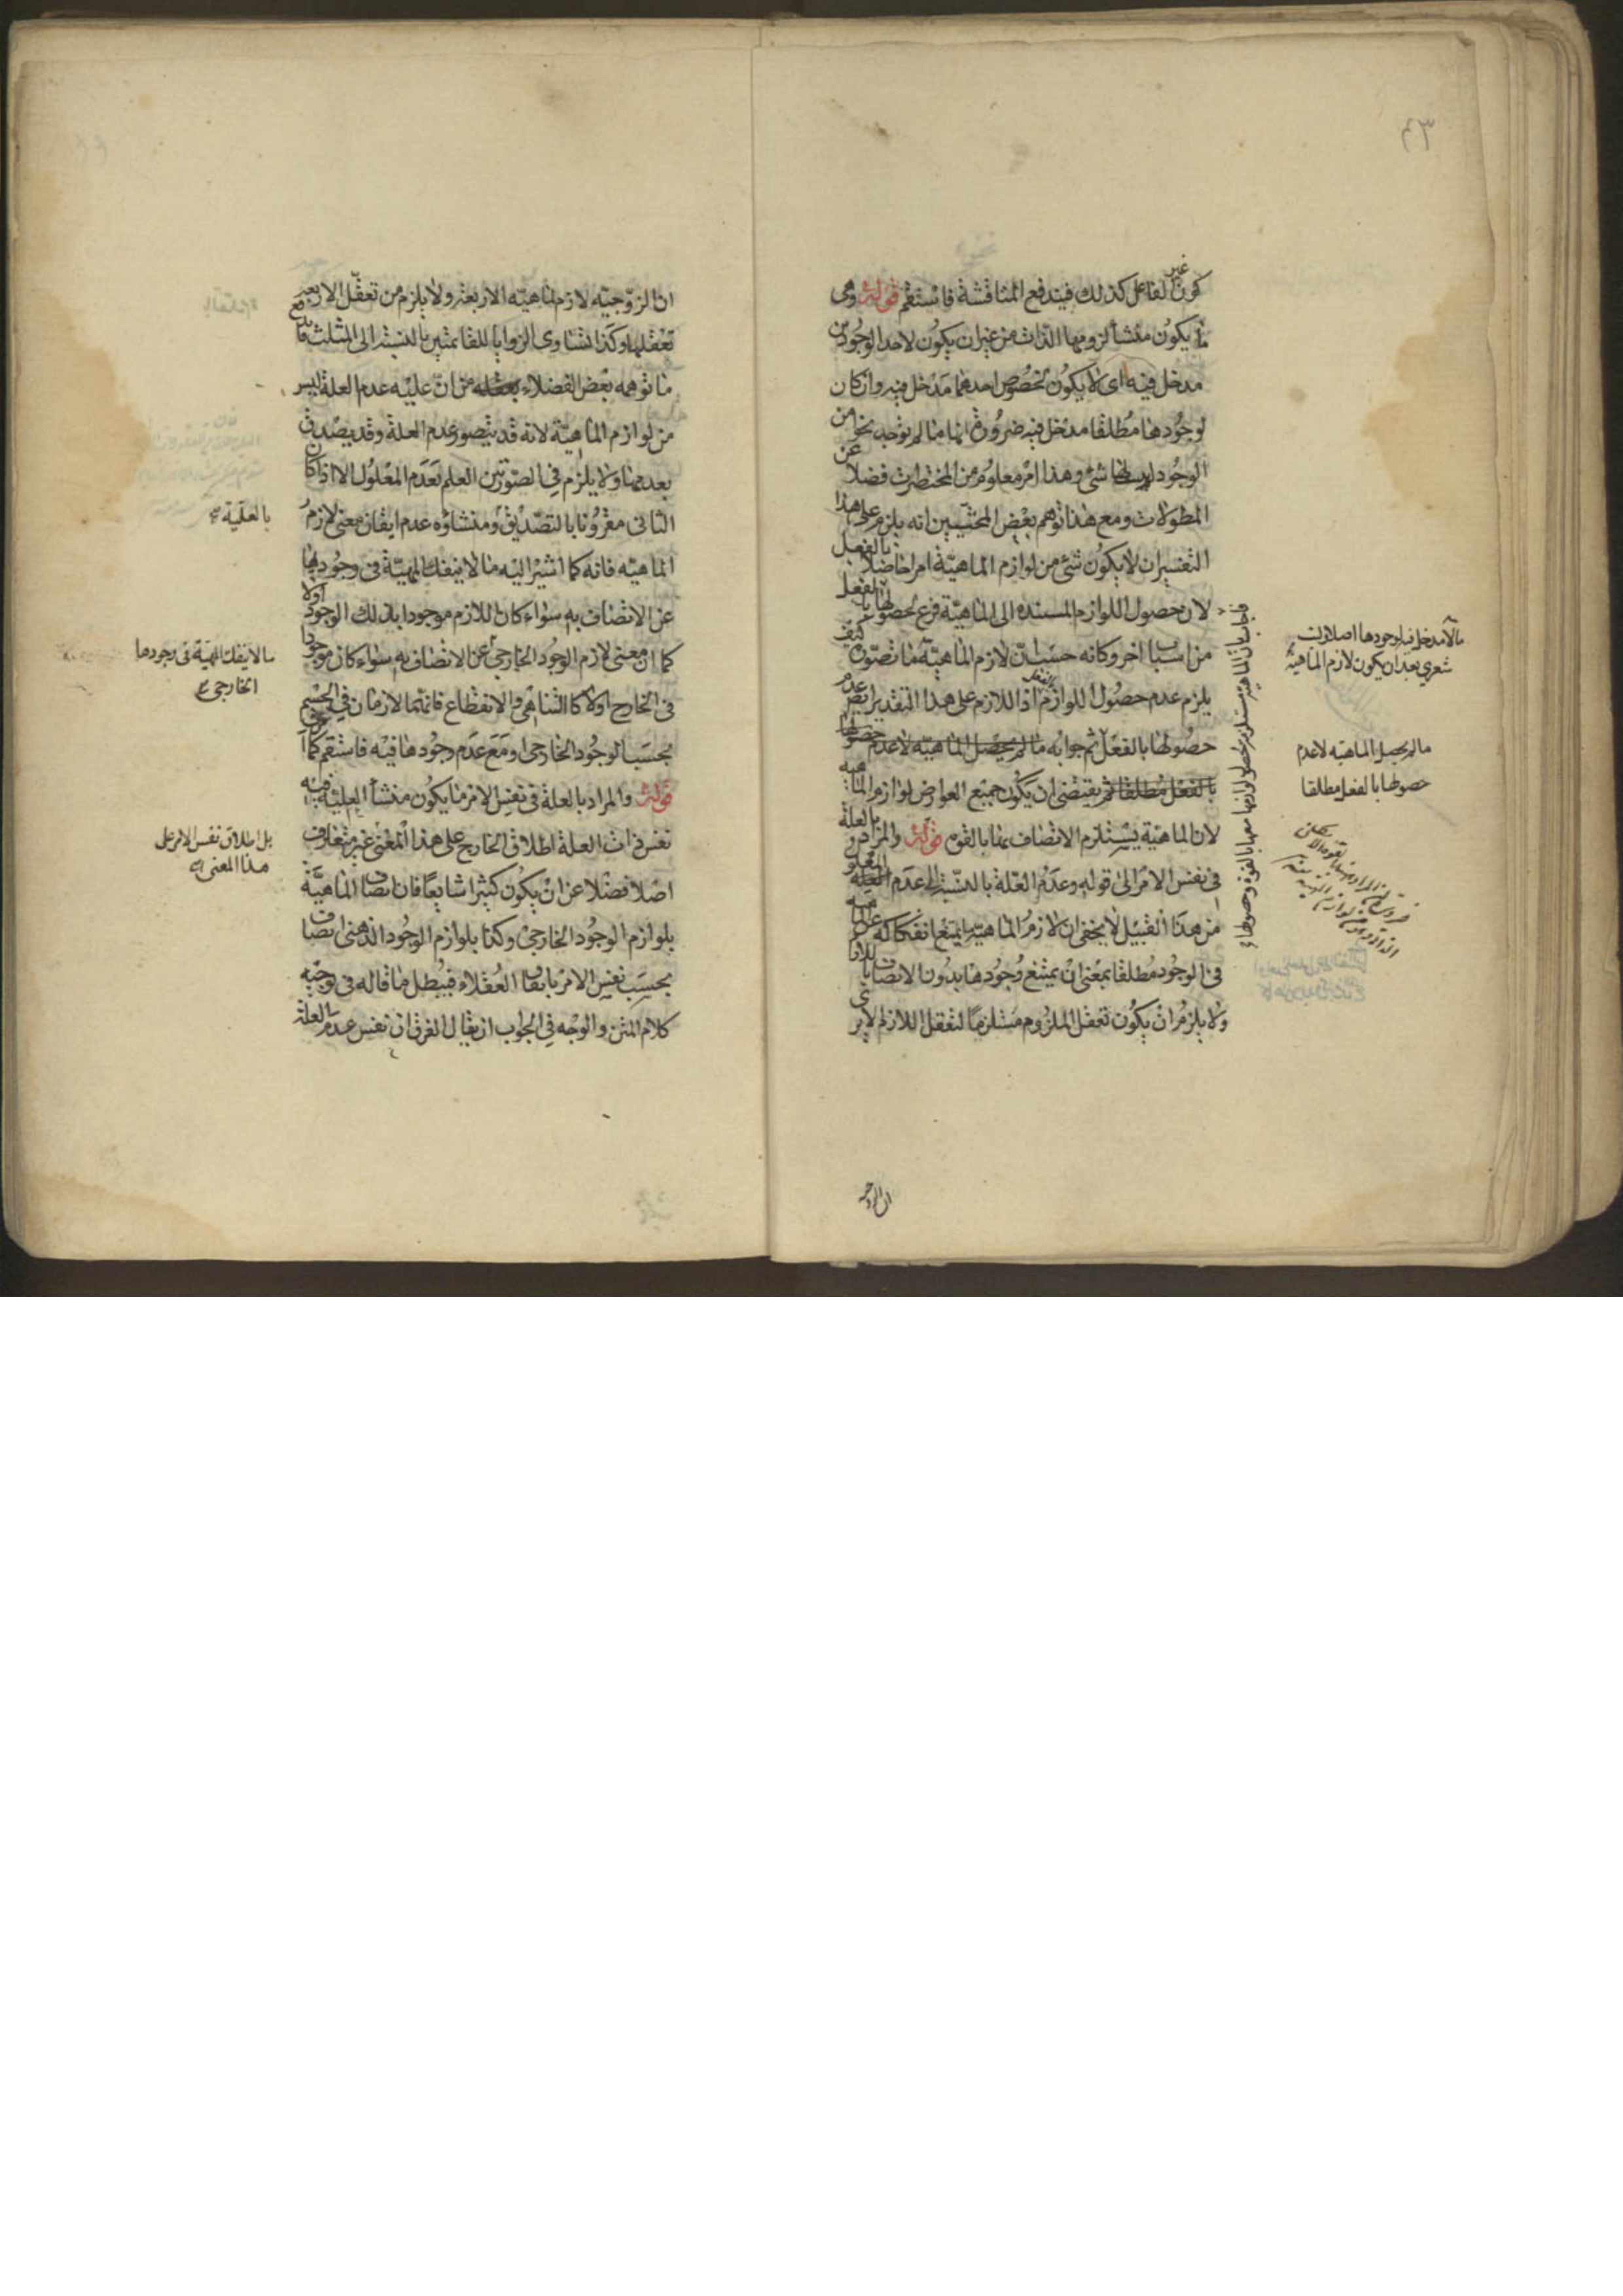 ٤٣
كون غير الفاعل كذلك فيندفع المناقشة فاستقم قوله وهى
ما يكون منشأ لزومها الذات من غير ان يكون لاحد الوجودين
مدخل فيه اى لا يكون لخصوص احدهما مدخل فيه وان كان
لوجودها مطلقا مدخل فيه ضرورة انها ما لم توجد بنحو من
الوجود شئ وهذا امر معلوم من المختصرات فضلا عن
المطولات ومع هذا توهم بعض المحشيين انه يلزم على هذا
التفسير ان لا يكون شئ من لوازم الماهية امرا حاصلا بالفعل
لان حصول اللوازم المستنده الى الماهية فرع لحصولها بالفعل
من اسباب اخر وكانه حسب ان لازم الماهية ما تصور كيف
يلزم عدم حصول اللوازم بالفعل اذ اللازم على هذا التقدير ايض عدم
حصولها بالفعل ثم جوابه ما لم يحصل الماهيه لا عدم حصولها
بالفعل مطلقا ثم يقتضى ان يكون جميع العوارض لوازم الماهيه
لان الماهية يستلزم الاتصاف بها بالقوه قوله والمراد بالعلة
فى نفس الامر الى قوله وعدم العلة بالنسبة الى عدم المعلول
من هذا القبيل لا يخفى ان لازم الماهيه يمتنع انفكاكه عن الماهيه
فى الوجود مطلقا بمعنى ان يمتنع وجودها بدون الاتصاف باللازم
ولا يلزم ان يكون تعقل الملزوم مستلزما لتعقل اللازم لا يرى
ما لا مدخل فيه لوجودها اصلا وليت
شعري بعد ان يكون لازم الماهية
ما لم يحصل الماهيه لا عدم
حصولها بالفعل مطلقا
ان الزوجيه
ان الزوجيه لازم لماهيه الاربعة ولا يلزم من تعقل الاربعة
تعقلها وكذا تساوى الزوايا للقائمتين بالنسبة الى المثلث
ما توهمه بعض الفضلاء من ان عليه عدم العلة ليس
من لوازم الماهية لانه قد يتصور عدم العلة وقد يصدق
بعدمها ولا يلزم فى الصورتين العلم بعدم المعلول الا اذا كان
الثانى مقرونا بالتصديق ومنشاؤه عدم ايقان معنى لازم
الماهيه فانه كما اشير اليه ما لا ينفك المهية فى وجودها
عن الاتصاف به سواء كان اللازم موجودا بذلك الوجود اولا
كما ان معنى لازم الوجود الخارجى عن الاتصاف به سواء كان موجودا
فى الخارج اولا كالتناهى والانقطاع فانهما لازمان فى الجسم
بحسب الوجود الخارجى ومع عدم وجودها فيه فاستقم كما امرت
قوله والمراد بالعلة فى نفس الامر ما يكون منشأ العلية فيه
نفس ذات العلة اطلاق الخارج على هذا المعنى غير متعارف
اصلا فضلا عن ان يكون كثيرا شايعا فان اتصاف الماهية
بلوازم الوجود الخارجى وكذا بلوازم الوجود الذهنى اتصاف
بحسب نفس الامر باتفاق العقلاء فيبطل ما قاله فى توجيه
كلام المتن والوجه فى الجواب ان يقال الفرق ان نفس عدم العلة
بالعلية
ما لا ينفك المهية فى وجودها
الخارجى
بل اطلاق نفس الامر على
هذا المعنى